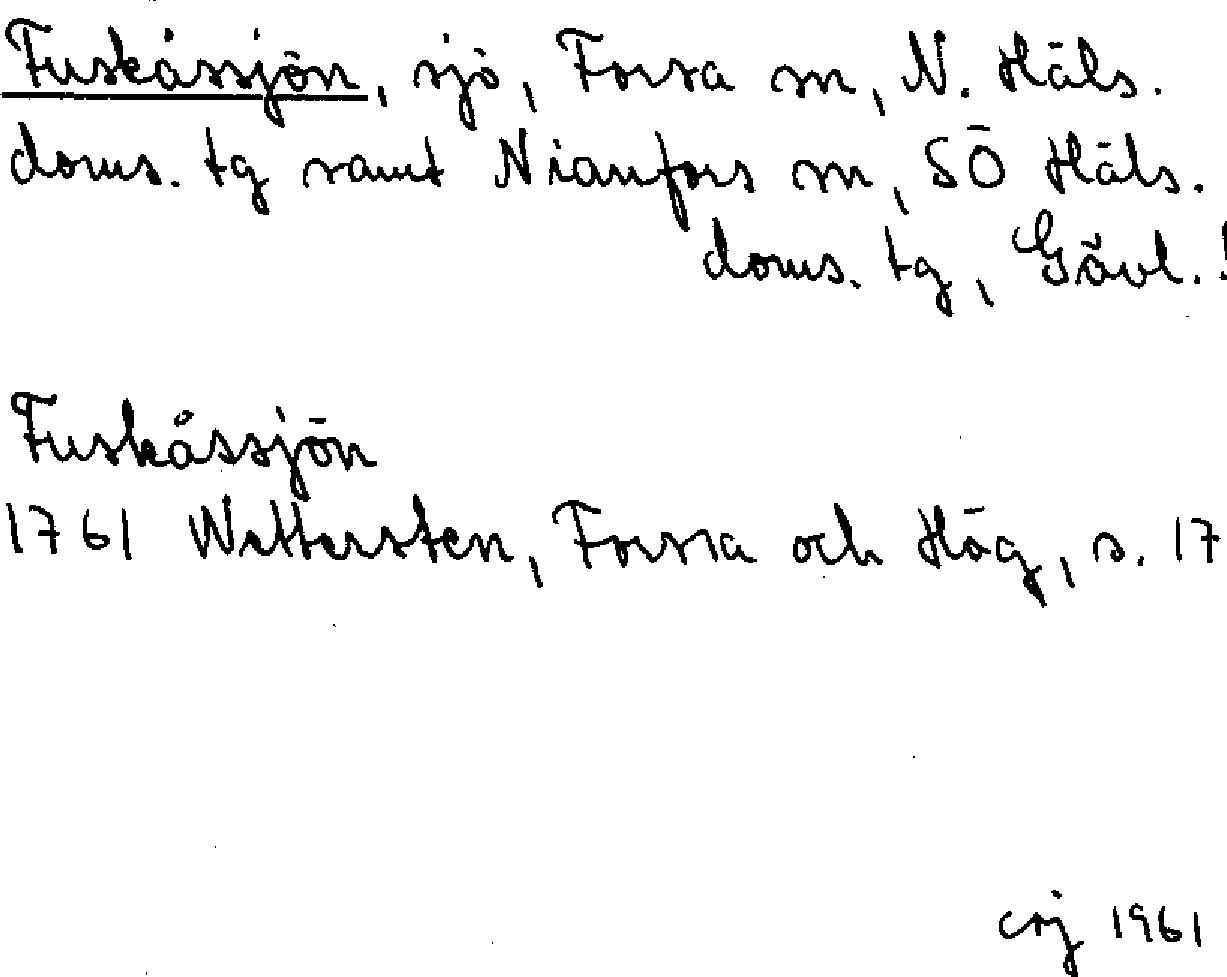 Fuskåssjön, sjö, Forsa sn, N. Häls.
doms. tg samt Nianfors sn, SÖ Häls.
doms. tg, Gävl.!
Fuskåssjön
1761 Wettersten, Forssa och Hög, s. 17
1961